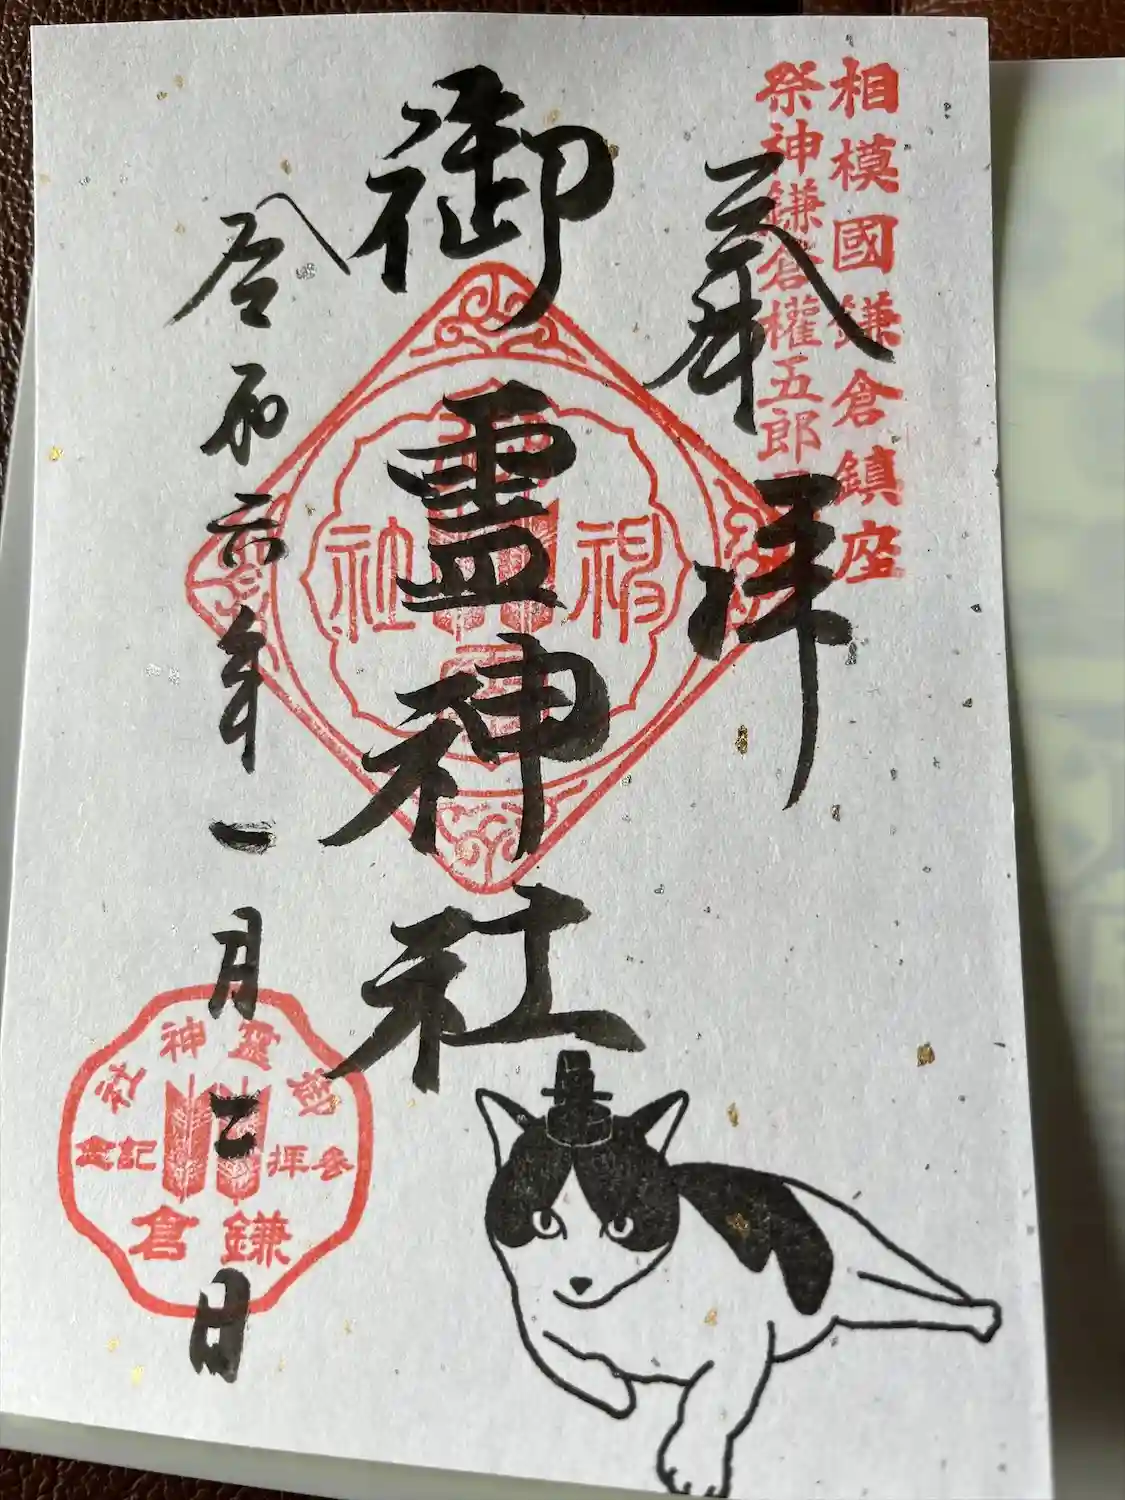 相模國鎌倉鎮座
祭神鎌倉權五郎
奉拝
御霊神社
令和六年一月二日
神
社
御霊神社
参拝記念
鎌倉